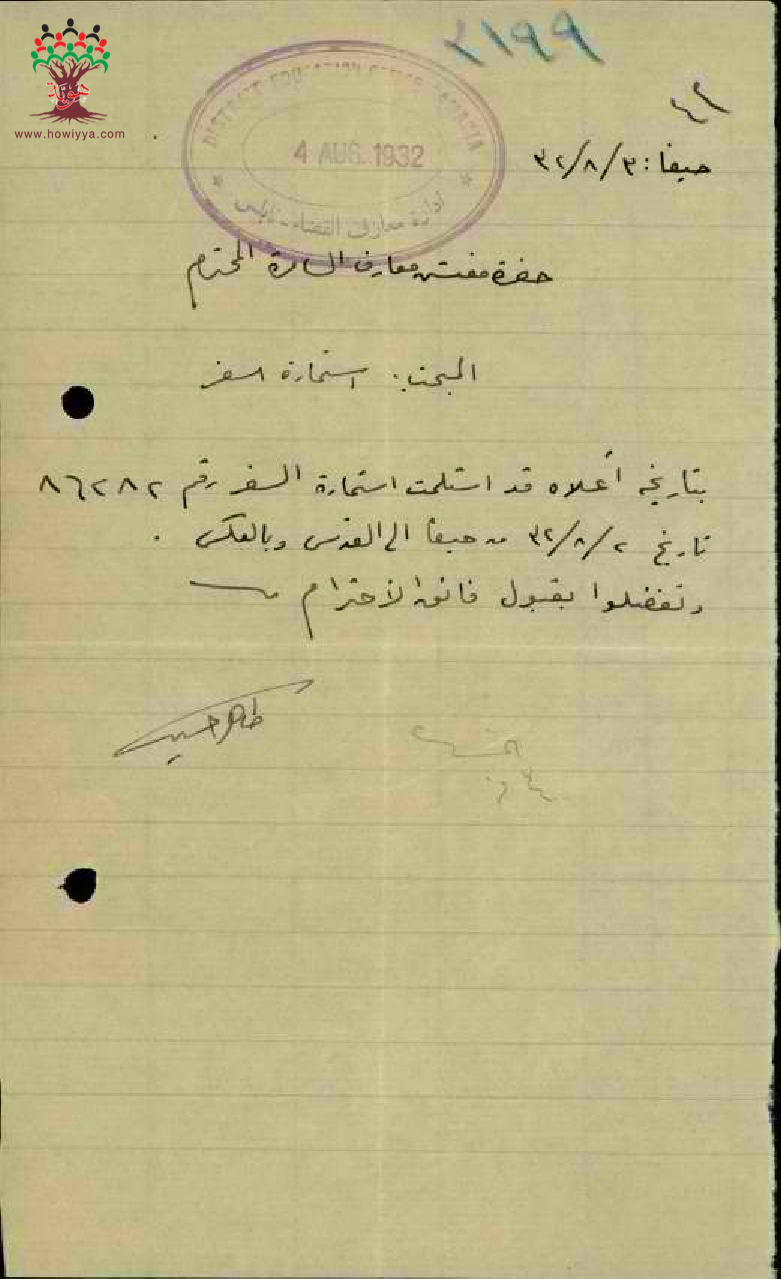 ٢١٩٩
٤٢
هوية
www.howiyya.com
DISTRICT EDUCATION OFFICE SAMARIA
4 AUG. 1932
ادارة معارف القضاء - نابلس
حيفا : ٣٢/٨/٣
حضرة مفتش معارف السامرة المحترم
المبحث : استمارة السفر
بتاريخه أعلاه قد استلمت استمارة السفر رقم ٨٦٢٨٢
تاريخ ٣٢/٨/٢ من حيفا الى القدس وبالعكس .
وتفضلوا بقبول فائق الاحترام
طاهر حسين